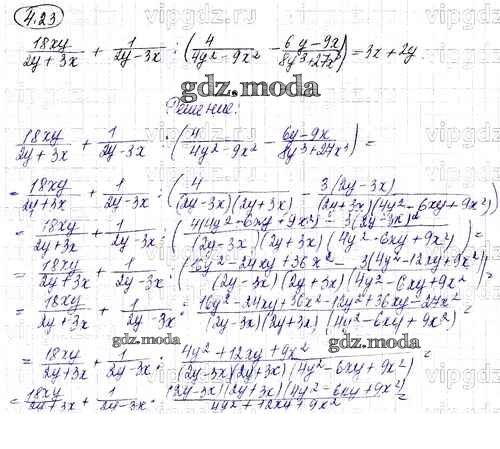 4.23
18xy/(2y + 3x) + 1/(2y - 3x) : (4/(4y² - 9x²) - (6y - 9x)/(8y³ + 27x³)) = 3x + 2y.
gdz.moda
Решение:
18xy/(2y + 3x) + 1/(2y - 3x) : (4/(4y² - 9x²) - (6y - 9x)/(8y³ + 27x³)) =
= 18xy/(2y + 3x) + 1/(2y - 3x) : (4/((2y - 3x)(2y + 3x)) - 3(2y - 3x)/((2y + 3x)(4y² - 6xy + 9x²)) =
= 18xy/(2y + 3x) + 1/(2y - 3x) : (4(4y² - 6xy + 9x²) - 3(2y - 3x)²)/((2y - 3x)(2y + 3x)(4y² - 6xy + 9x²)) =
= 18xy/(2y + 3x) + 1/(2y - 3x) : (16y² - 24xy + 36x² - 3(4y² - 12xy + 9x²))/((2y - 3x)(2y + 3x)(4y² - 6xy + 9x²)) =
= 18xy/(2y + 3x) + 1/(2y - 3x) : (16y² - 24xy + 36x² - 12y² + 36xy - 27x²)/((2y - 3x)(2y + 3x)(4y² - 6xy + 9x²)) =
gdz.moda
gdz.moda
= 18xy/(2y + 3x) + 1/(2y - 3x) : (4y² + 12xy + 9x²)/((2y - 3x)(2y + 3x)(4y² - 6xy + 9x²)) =
= 18xy/(2y + 3x) + 1/(2y - 3x) · (2y - 3x)(2y + 3x)(4y² - 6xy + 9x²)/(4y² + 12xy + 9x²) =